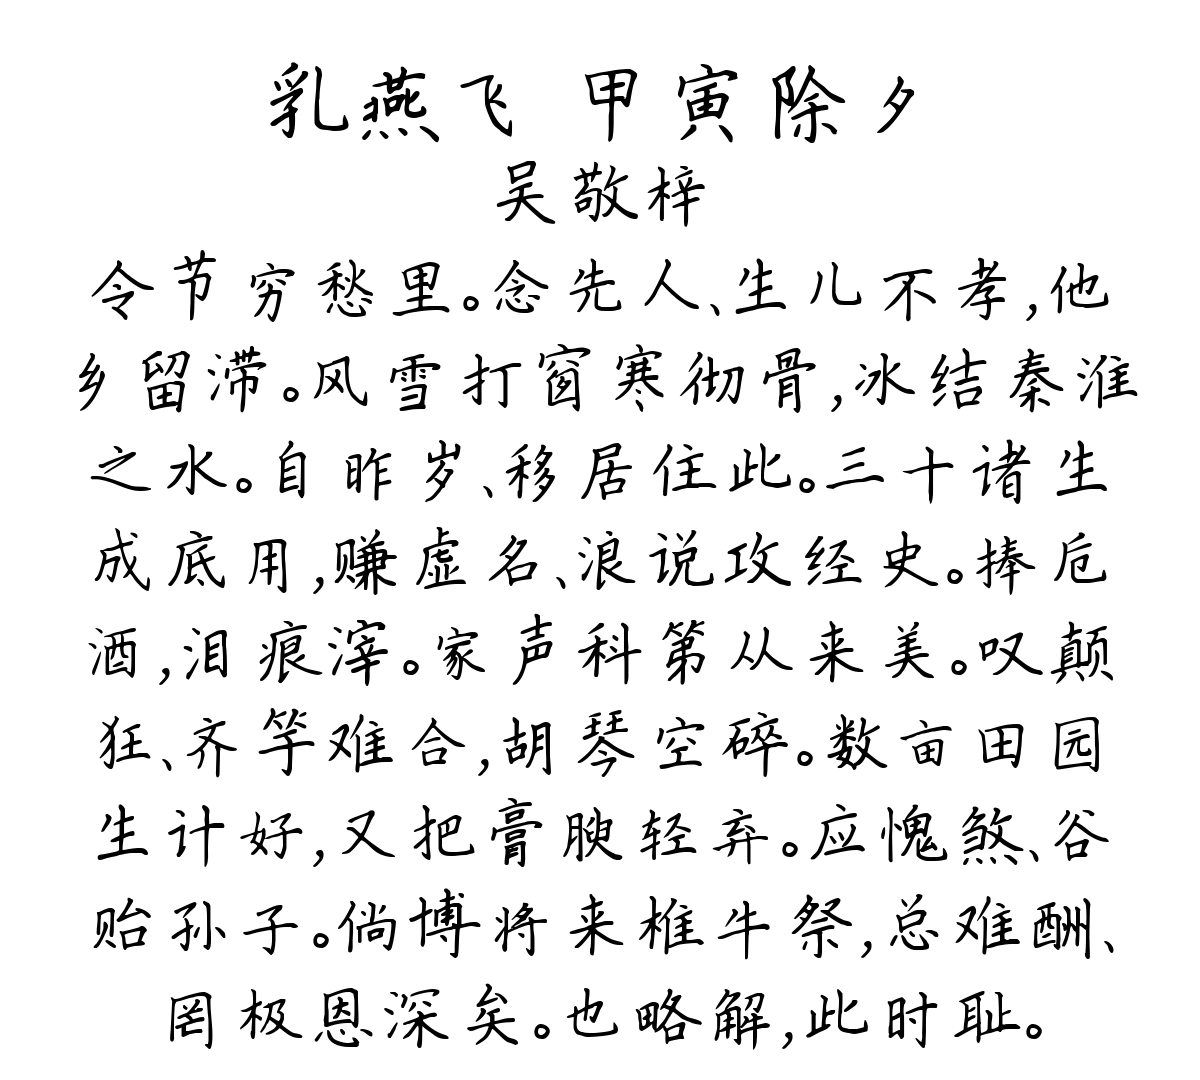 乳燕飞 甲寅除夕
吴敬梓
令节穷愁里。念先人、生儿不孝,他
乡留滞。风雪打窗寒彻骨,冰结秦淮
之水。自昨岁、移居住此。三十诸生
成底用,赚虚名、浪说攻经史。捧卮
酒,泪痕滓。家声科第从来美。叹颠
狂、齐竽难合,胡琴空碎。数亩田园
生计好,又把膏腴轻弃。应愧煞、谷
贻孙子。倘博将来椎牛祭,总难酬、
罔极恩深矣。也略解,此时耻。